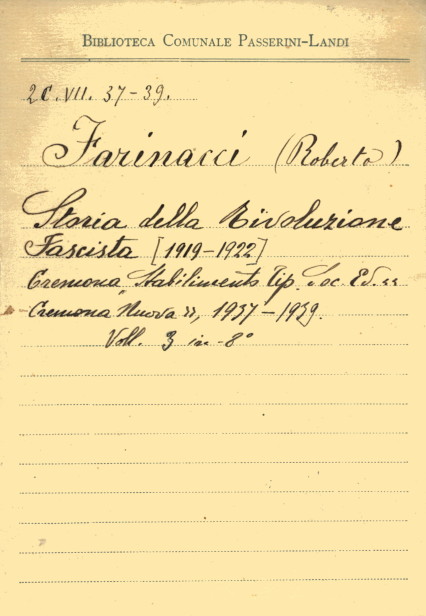 BIBLIOTECA COMUNALE PASSERINI-LANDI
2C.VII. 37-39.
Farinacci (Roberto)
Storia della Rivoluzione
Fascista [1919-1922]
Cremona, Stabilimento Tip. Soc. Ed. "
Cremona Nuova ", 1937-1939.
Voll. 3 in-8°